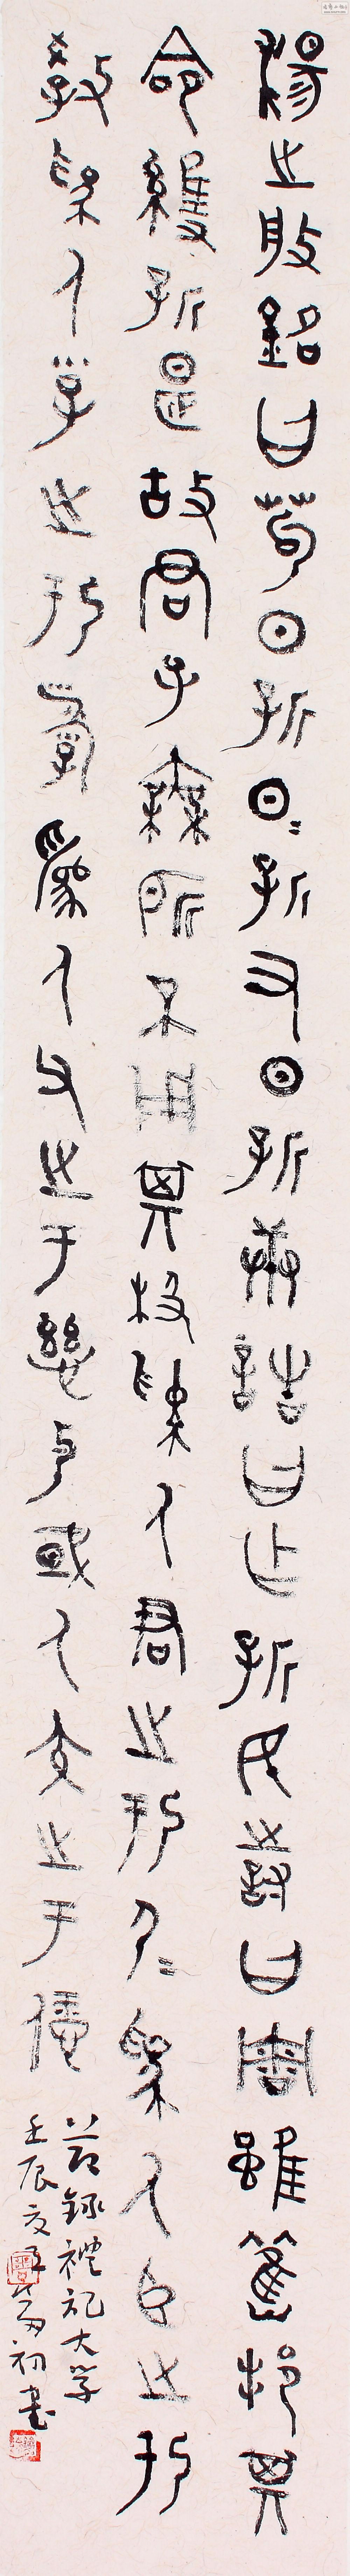 湯之盤銘曰苟日新日〻新又日新康誥曰作新民詩曰周雖舊邦其
命維新是故君子無所不用其極為人君止於仁為人臣止於
敬為人子止於孝為人父止於慈與國人交止於信
節錄禮記大學
壬辰夏 初書